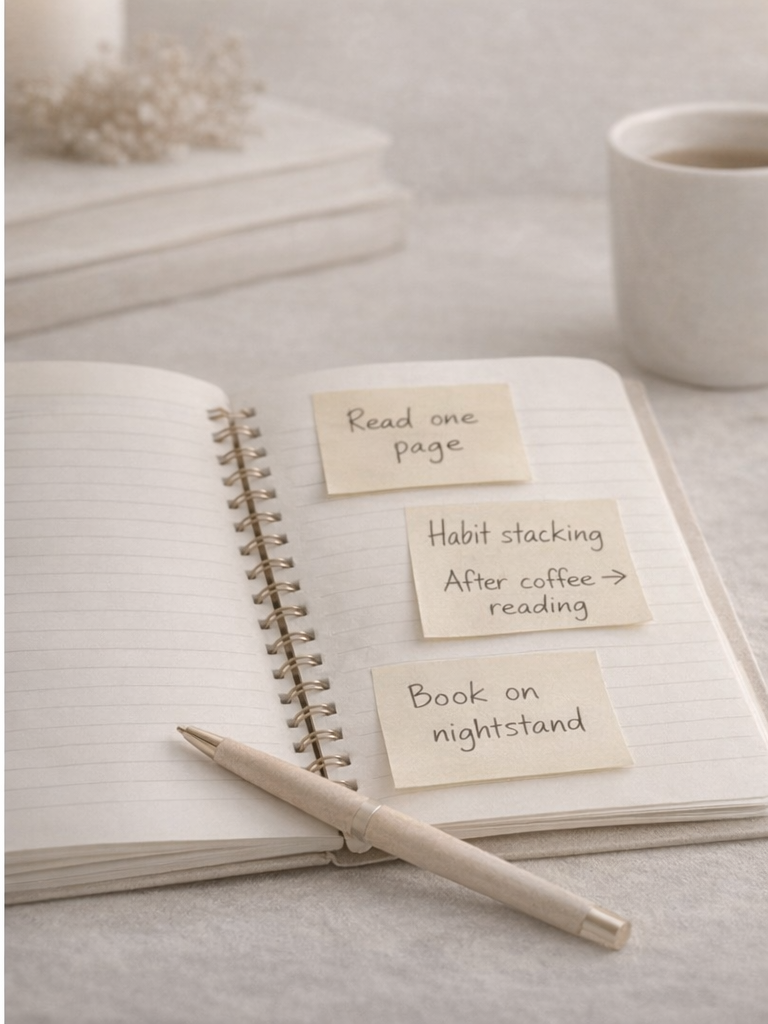 Read one
page
Habit stacking
After coffee →
reading
Book on
nightstand